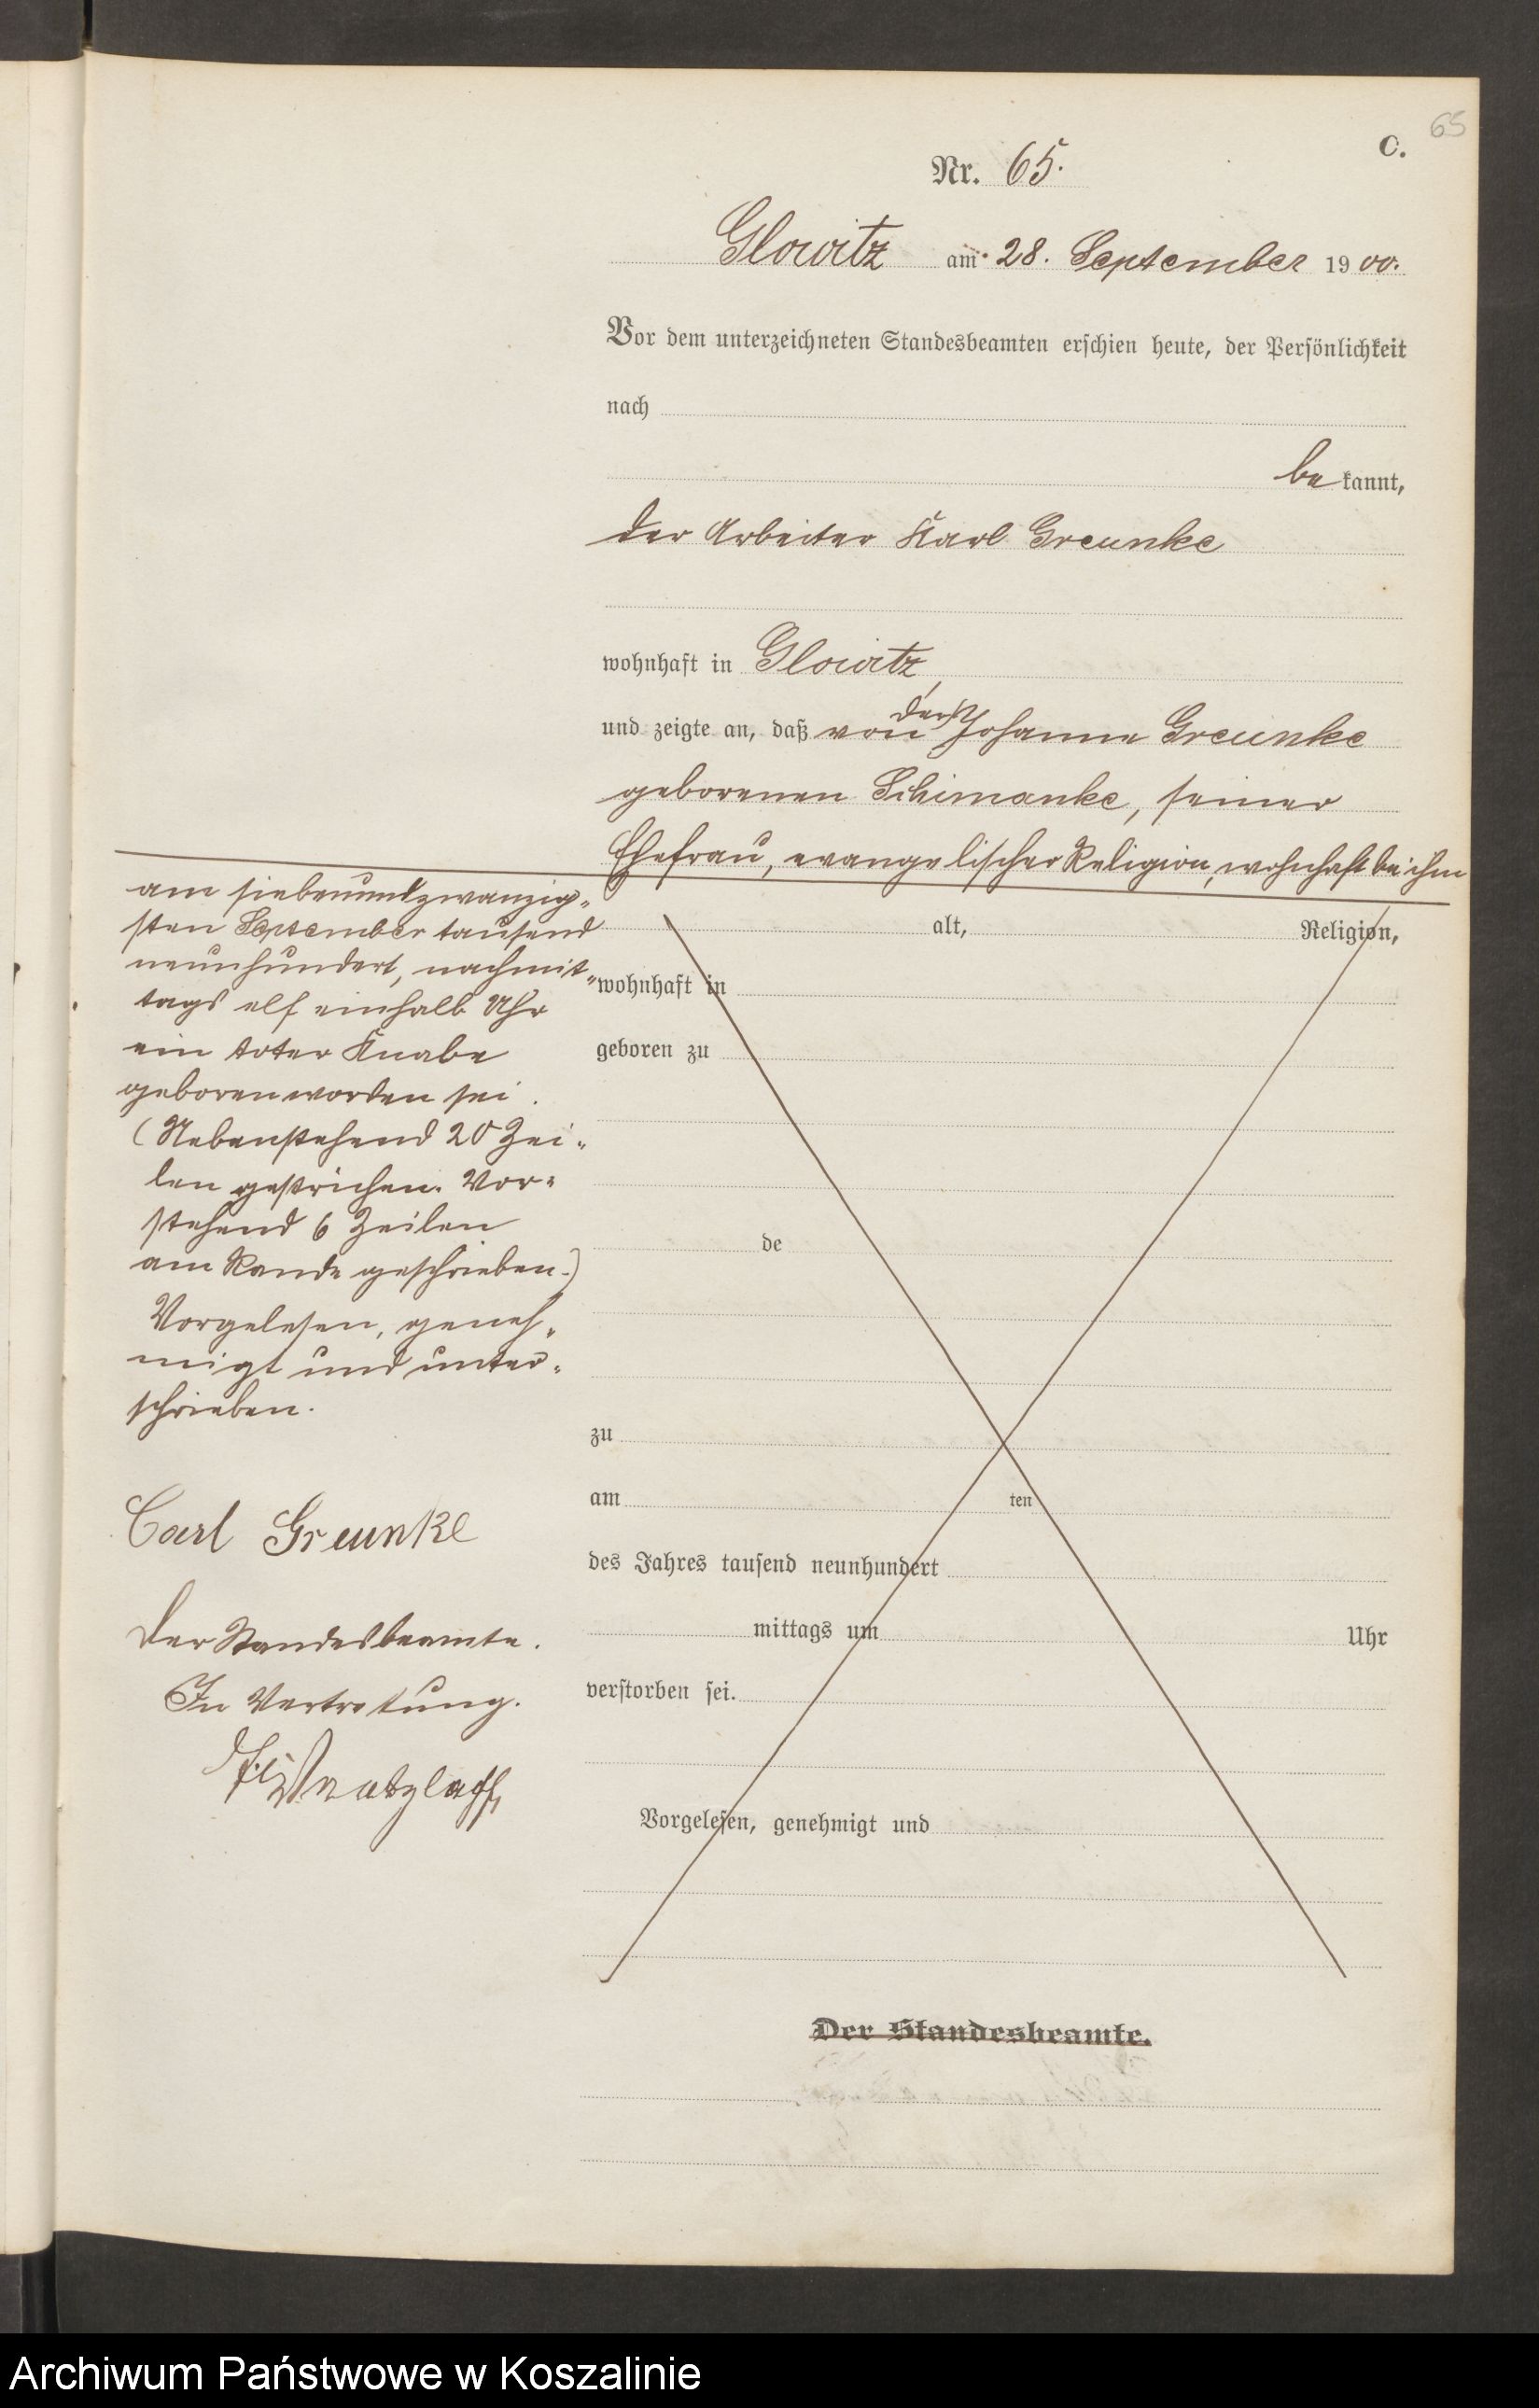 65
C.
Nr. 65.
Glowitz am 28. September 1900.
Vor dem unterzeichneten Standesbeamten erschien heute, der Persönlichkeit
nach
be kannt,
der Arbeiter Karl Greunke
wohnhaft in Glowitz,
und zeigte an, daß von der Johanne Greunke
geborenen Schimanke, seiner
Ehefrau, evangelischer Religion, wohnhaft bei ihm
am siebenundzwanzig-
sten September tausend
neunhundert, nachmit-
tags elf einhalb Uhr
ein toter Knabe
geboren worden sei.
(Nebenstehend 20 Zei-
len gestrichen. Vor-
stehend 6 Zeilen
am Rande geschrieben.)
Vorgelesen, geneh-
migt und unter-
schrieben.
Carl Greunke
Der Standesbeamte.
In Vertretung.
alt, Religion,
wohnhaft in
geboren zu
de
zu
am ten
des Jahres tausend neunhundert
mittags um Uhr
verstorben sei.
Vorgelesen, genehmigt und
Der Standesbeamte.
Archiwum Państwowe w Koszalinie